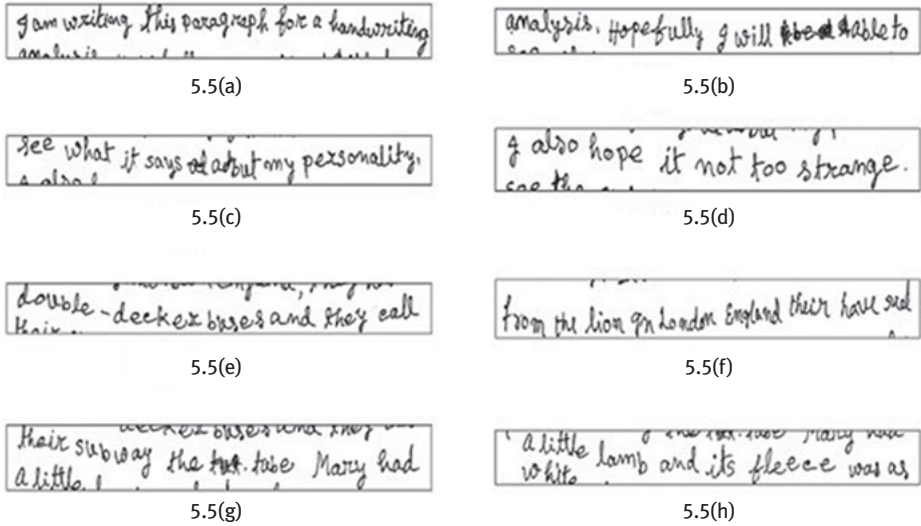 I am writing this paragraph for a handwriting
5.5(a)
analysis. Hopefully I will able to
5.5(b)
see what it says about my personality.
5.5(c)
I also hope it not too strange.
5.5(d)
double-decker buses and they call
5.5(e)
from the lion In London England their have red
5.5(f)
their subway the tube Mary had
A little
5.5(g)
A little lamb and its fleece was as
white
5.5(h)